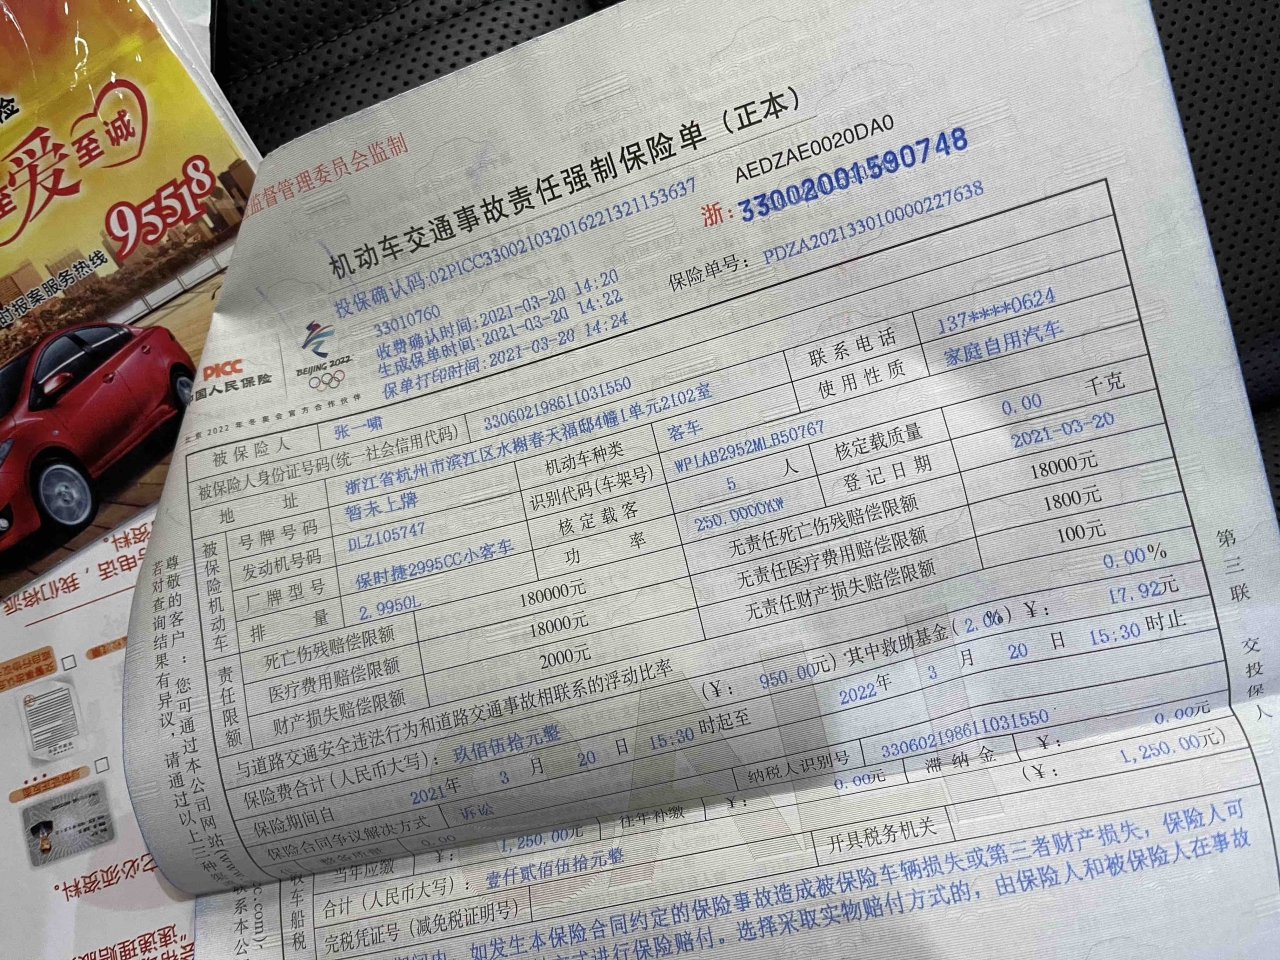 监督管理委员会监制
机动车交通事故责任强制保险单（正本）
AEDZAE0020DA0
投保确认码:02PICC330021032016221321153637
浙：33002001590748
33010760
收费确认时间:2021-03-20 14:20
生成保单时间:2021-03-20 14:22
保单打印时间:2021-03-20 14:24
保险单号：PDZA202133010000227638
PICC
中国人民保险
BEIJING 2022
北京2022年冬奥会官方合作伙伴
被保险人 张一啸
被保险人身份证号码(统一社会信用代码) 330602198611031550
联系电话 137****0624
地址 浙江省杭州市滨江区水榭春天福邸4幢1单元2102室
使用性质 家庭自用汽车
被保险机动车
号牌号码 暂未上牌 机动车种类 客车
发动机号码 DLZ105747 识别代码(车架号) WP1AB2952MLB50767
厂牌型号 保时捷2995CC小客车 核定载客 5 人 核定载质量 0.00 千克
排量 2.9950L 功率 250.0000KW 登记日期 2021-03-20
责任限额
死亡伤残赔偿限额 180000元 无责任死亡伤残赔偿限额 18000元
医疗费用赔偿限额 18000元 无责任医疗费用赔偿限额 1800元
财产损失赔偿限额 2000元 无责任财产损失赔偿限额 100元
与道路交通安全违法行为和道路交通事故相联系的浮动比率 0.00%
保险费合计(人民币大写)：玖佰伍拾元整 （¥： 950.00元）其中救助基金( 2.00%) ¥： 17.92元
保险期间自 2021年 3 月 20 日 15:30时起至 2022年 3 月 20 日 15:30时止
保险合同争议解决方式 诉讼
纳税人识别号 330602198611031550
当年应缴 ¥： 1,250.00元 往年补缴 ¥： 0.00元 滞纳金 ¥： 0.00元
合计（人民币大写）：壹仟贰佰伍拾元整 （¥： 1,250.00元）
完税凭证号（减免税证明号） 开具税务机关
如发生本保险合同约定的保险事故造成被保险车辆损失或第三者财产损失，保险人可
方式进行保险赔付。选择采取实物赔付方式的，由保险人和被保险人在事故
第三联 交投保人
尊敬的客户：您可通过本公司网站(www.
若对查询结果有异议，请通过以上三种
车船税
爱
至诚
95518
时报案服务热线